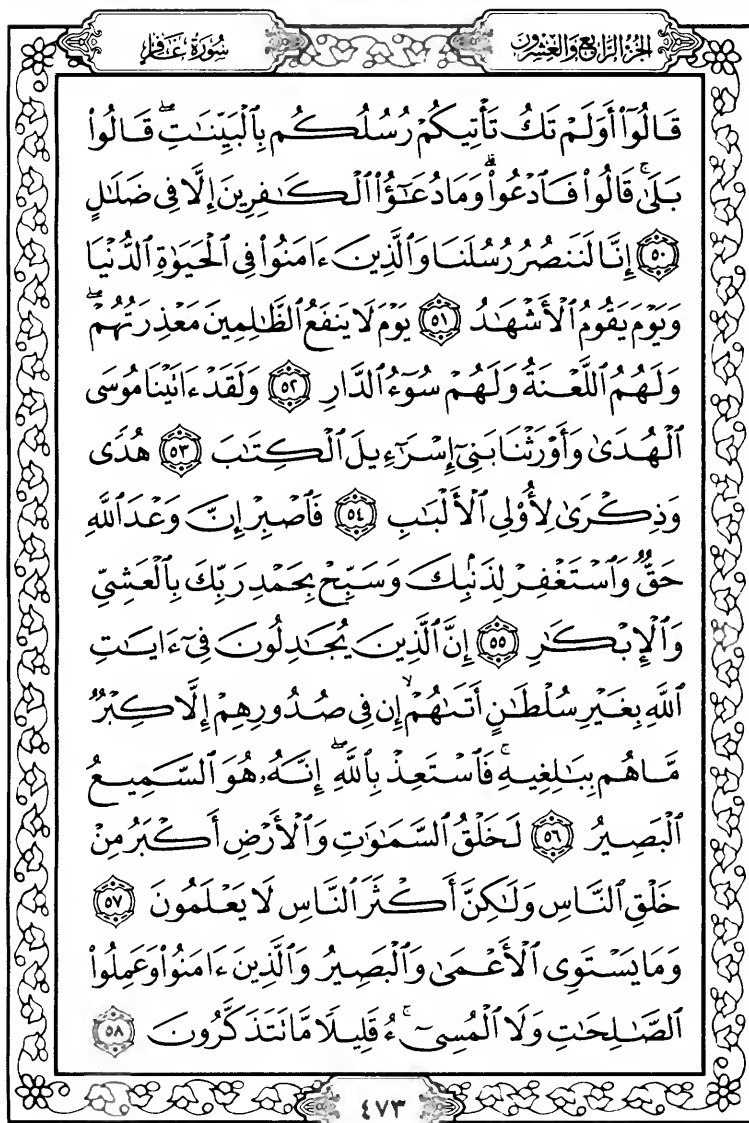 الجزء الرابع والعشرون
سورة غافر
قَالُوٓا۟ أَوَلَمْ تَكُ تَأْتِيكُمْ رُسُلُكُم بِٱلْبَيِّنَٰتِ ۖ قَالُوا۟
بَلَىٰ ۚ قَالُوا۟ فَٱدْعُوا۟ ۗ وَمَا دُعَٰٓؤُا۟ ٱلْكَٰفِرِينَ إِلَّا فِى ضَلَٰلٍ
٥٠ إِنَّا لَنَنصُرُ رُسُلَنَا وَٱلَّذِينَ ءَامَنُوا۟ فِى ٱلْحَيَوٰةِ ٱلدُّنْيَا
وَيَوْمَ يَقُومُ ٱلْأَشْهَٰدُ ٥١ يَوْمَ لَا يَنفَعُ ٱلظَّٰلِمِينَ مَعْذِرَتُهُمْ ۖ
وَلَهُمُ ٱللَّعْنَةُ وَلَهُمْ سُوٓءُ ٱلدَّارِ ٥٢ وَلَقَدْ ءَاتَيْنَا مُوسَى
ٱلْهُدَىٰ وَأَوْرَثْنَا بَنِىٓ إِسْرَٰٓءِيلَ ٱلْكِتَٰبَ ٥٣ هُدًى
وَذِكْرَىٰ لِأُو۟لِى ٱلْأَلْبَٰبِ ٥٤ فَٱصْبِرْ إِنَّ وَعْدَ ٱللَّهِ
حَقٌّ وَٱسْتَغْفِرْ لِذَنۢبِكَ وَسَبِّحْ بِحَمْدِ رَبِّكَ بِٱلْعَشِىِّ
وَٱلْإِبْكَٰرِ ٥٥ إِنَّ ٱلَّذِينَ يُجَٰدِلُونَ فِىٓ ءَايَٰتِ
ٱللَّهِ بِغَيْرِ سُلْطَٰنٍ أَتَىٰهُمْ ۙ إِن فِى صُدُورِهِمْ إِلَّا كِبْرٌ
مَّا هُم بِبَٰلِغِيهِ ۚ فَٱسْتَعِذْ بِٱللَّهِ ۖ إِنَّهُۥ هُوَ ٱلسَّمِيعُ
ٱلْبَصِيرُ ٥٦ لَخَلْقُ ٱلسَّمَٰوَٰتِ وَٱلْأَرْضِ أَكْبَرُ مِنْ
خَلْقِ ٱلنَّاسِ وَلَٰكِنَّ أَكْثَرَ ٱلنَّاسِ لَا يَعْلَمُونَ ٥٧
وَمَا يَسْتَوِى ٱلْأَعْمَىٰ وَٱلْبَصِيرُ وَٱلَّذِينَ ءَامَنُوا۟ وَعَمِلُوا۟
ٱلصَّٰلِحَٰتِ وَلَا ٱلْمُسِىٓءُ ۚ قَلِيلًا مَّا نَتَذَكَّرُونَ ٥٨
٤٧٣